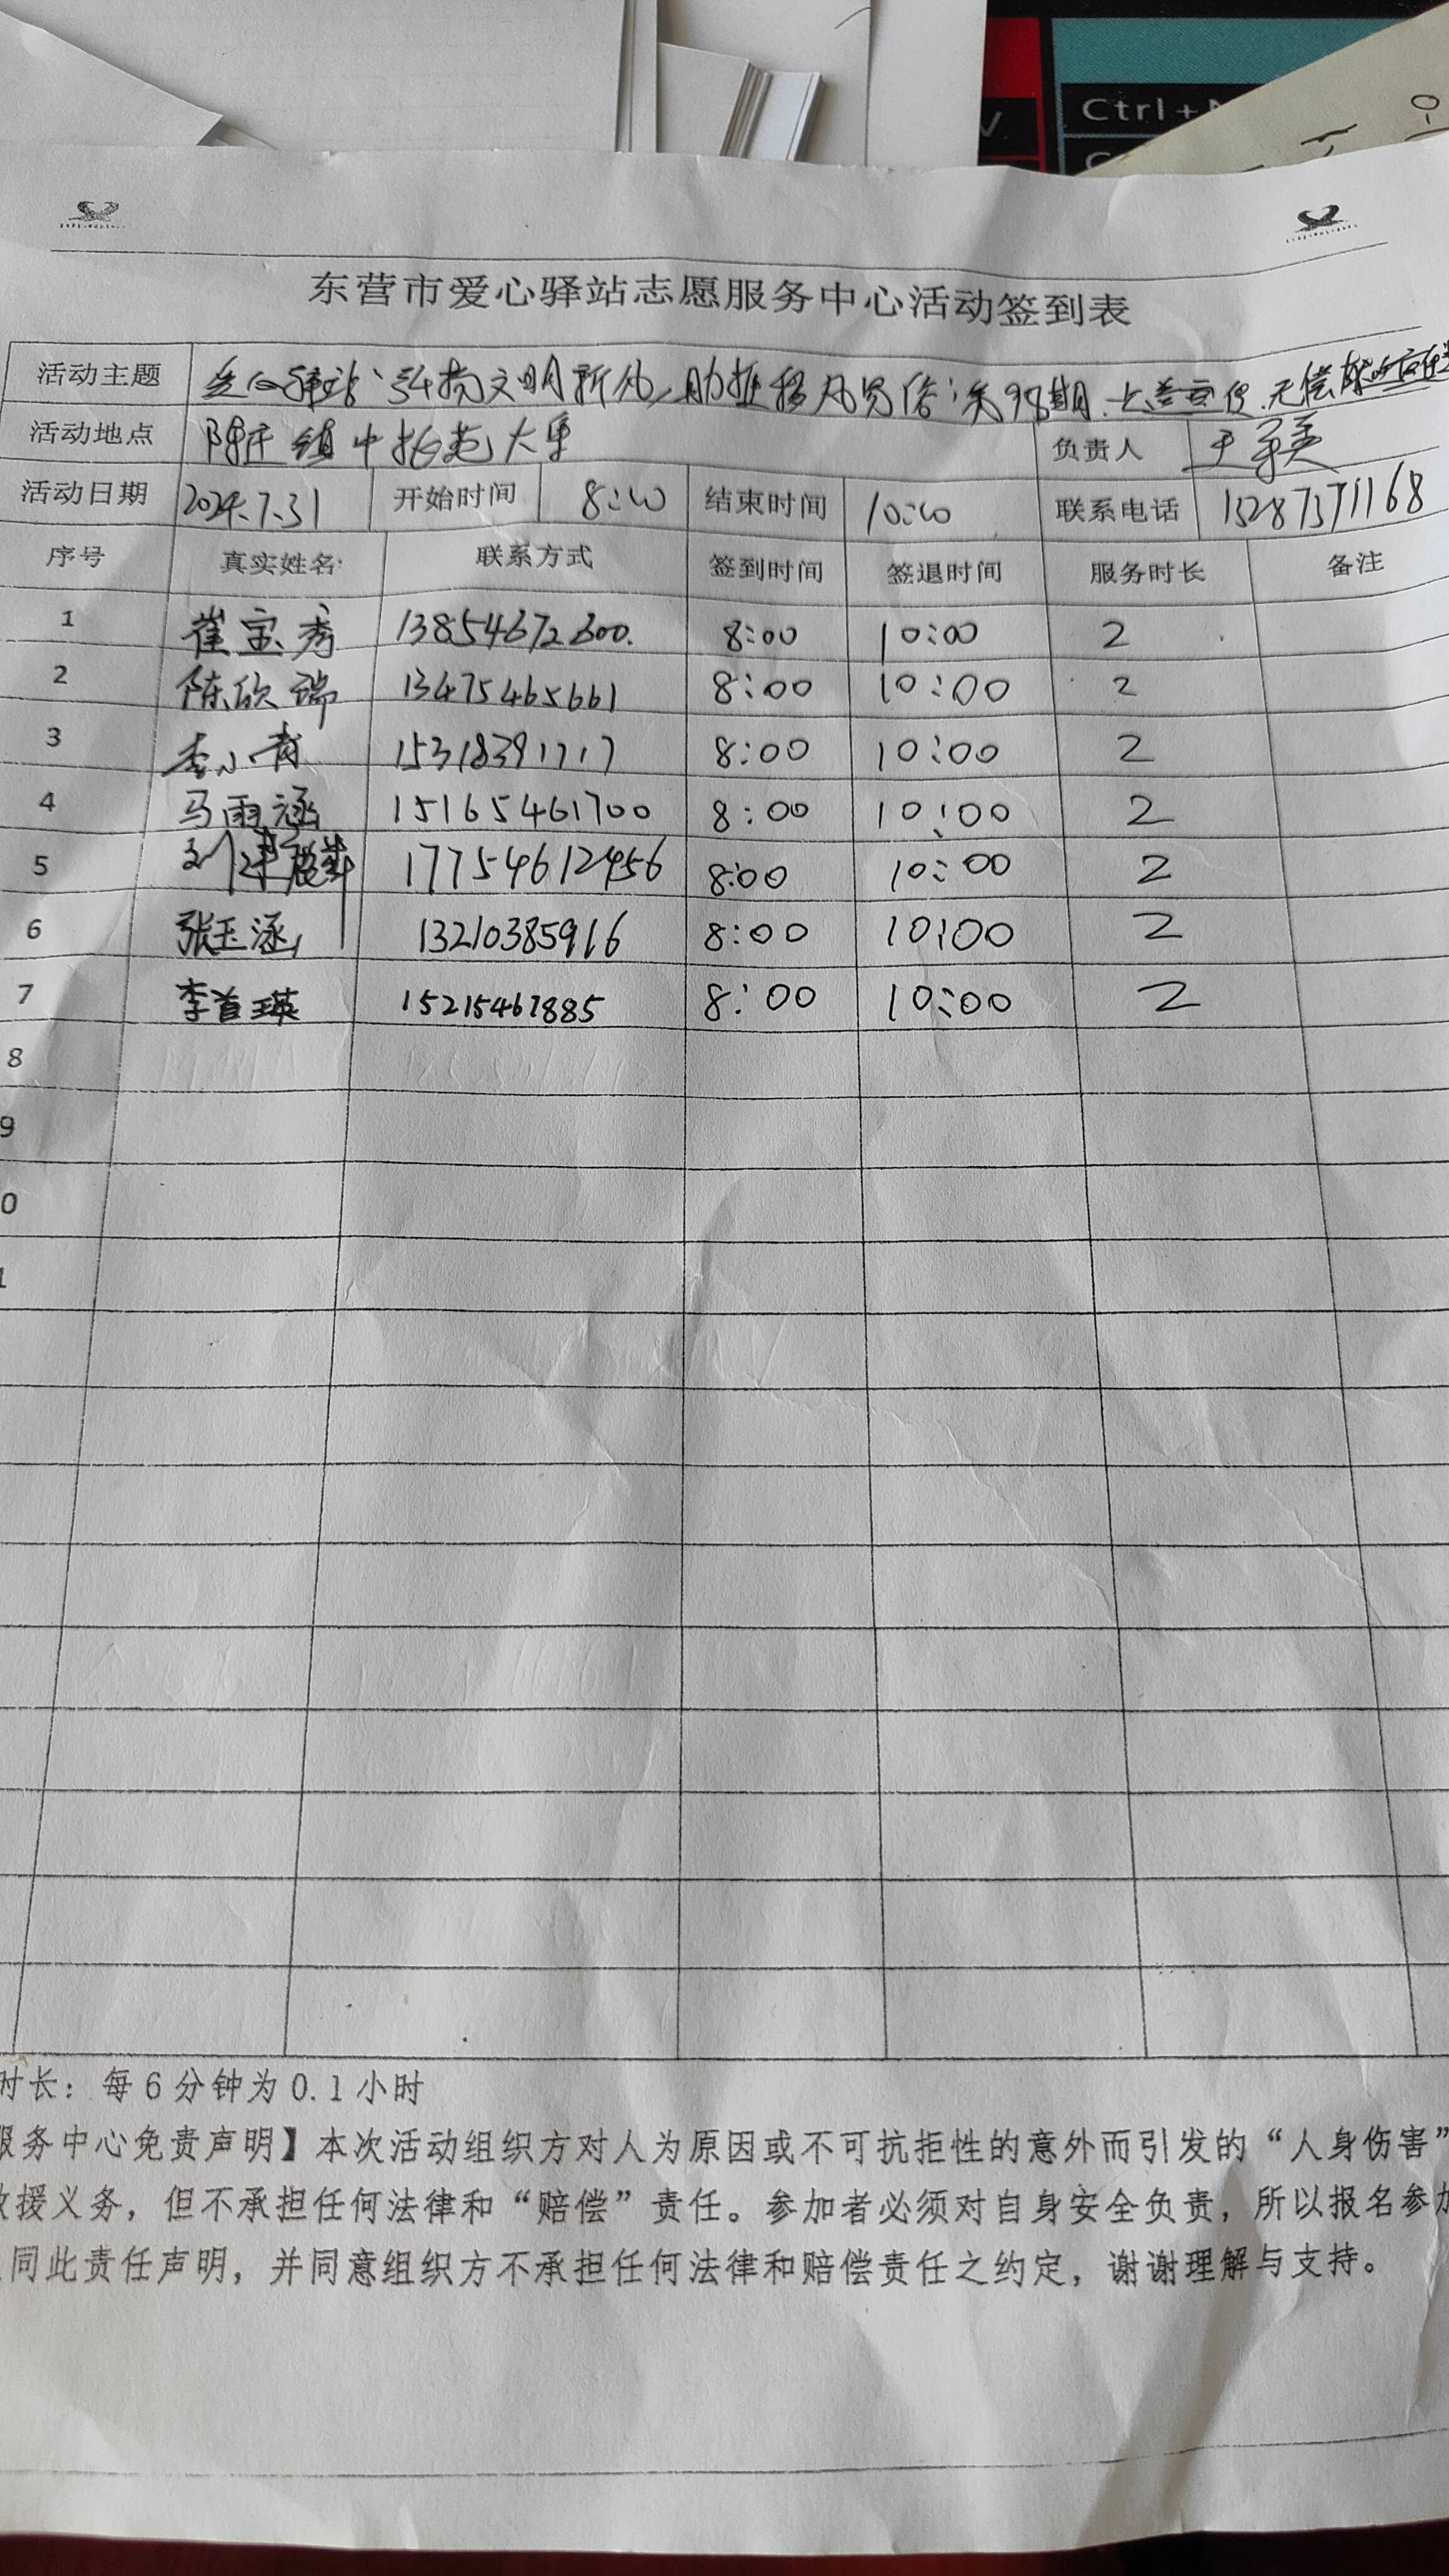 Ctrl+
东营市爱心驿站志愿服务中心活动签到表
活动主题 弘扬文明新风,助推移风易俗 第98期 无偿
活动地点 陈庄镇中 大 负责人
活动日期 2024.7.31 开始时间 8:00 结束时间 10:00 联系电话
序号 真实姓名: 联系方式 签到时间 签退时间 服务时长 备注
1 崔宝秀 13854672600. 8:00 10:00 2
2 陈欣瑞 13475465661 8:00 10:00 2
3 李小青 15318391717 8:00 10:00 2
4 马雨涵 15165461700 8:00 10:00 2
5 17754612456 8:00 10:00 2
6 张玉涵 13210385916 8:00 10:00 2
7 李首瑛 15215467885 8:00 10:00 2
8
9
0
1
时长:每6分钟为0.1小时
服务中心免责声明】本次活动组织方对人为原因或不可抗拒性的意外而引发的“人身伤害”
救援义务,但不承担任何法律和“赔偿”责任。参加者必须对自身安全负责,所以报名参加
同此责任声明,并同意组织方不承担任何法律和赔偿责任之约定,谢谢理解与支持。